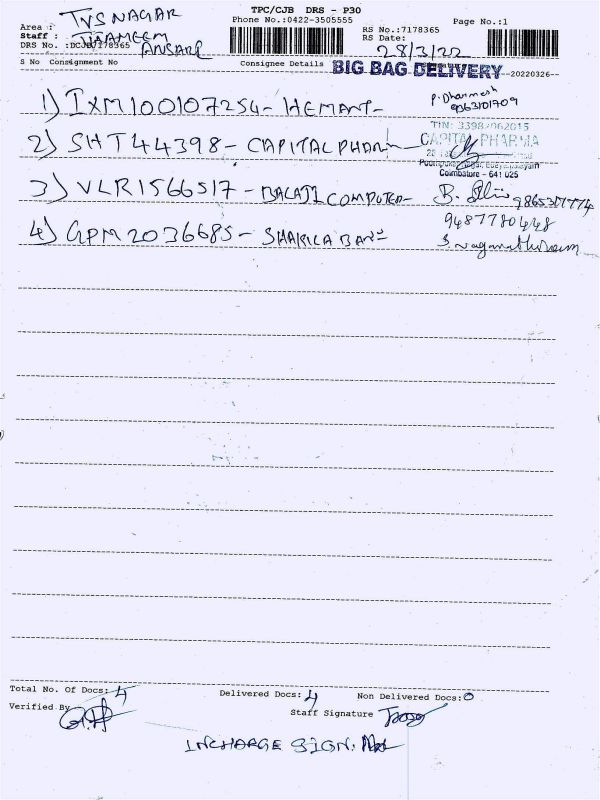 TPC/CJB DRS - P30
Phone No.:0422-3505555
Page No.:1
Area : TVS NAGAR
Staff : THAMEEM ANSARI
DRS No. :DCJB/7178365
RS No.:7178365
RS Date: 28/3/22
S No Consignment No Consignee Details BIG BAG DELIVERY --20220326--
1) IXM100107254 - HEMANT - P. Dharmesh
2) SHT44398 - CAPITAL PHARM
TIN: 33982062015
CAPITAL PHARMA
Coimbatore - 641 025
3) VLR1566517 - BALAJI COMPUTER -
4) GPM2036685 - SHAKILA BANU 9487780448
Total No. Of Docs: 4 Delivered Docs: 4 Non Delivered Docs: 0
Verified By
Staff Signature
INCHARGE SIGN: